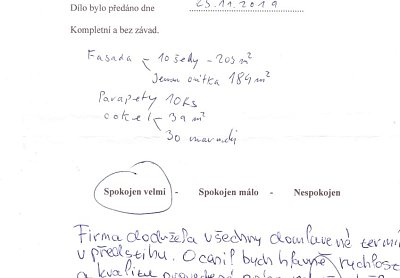 Dílo bylo předáno dne 25.11.2019
Kompletní a bez závad.
Fasada 10 šedy - 203 m²
Jemná omítka 184 m²
Parapety 10 ks
sokel 39 m²
30
Spokojen velmi - Spokojen málo - Nespokojen
Firma dodržela všechny domluvené
v předstihu. Ocenil bych hlavně rychlost
a kvalitu